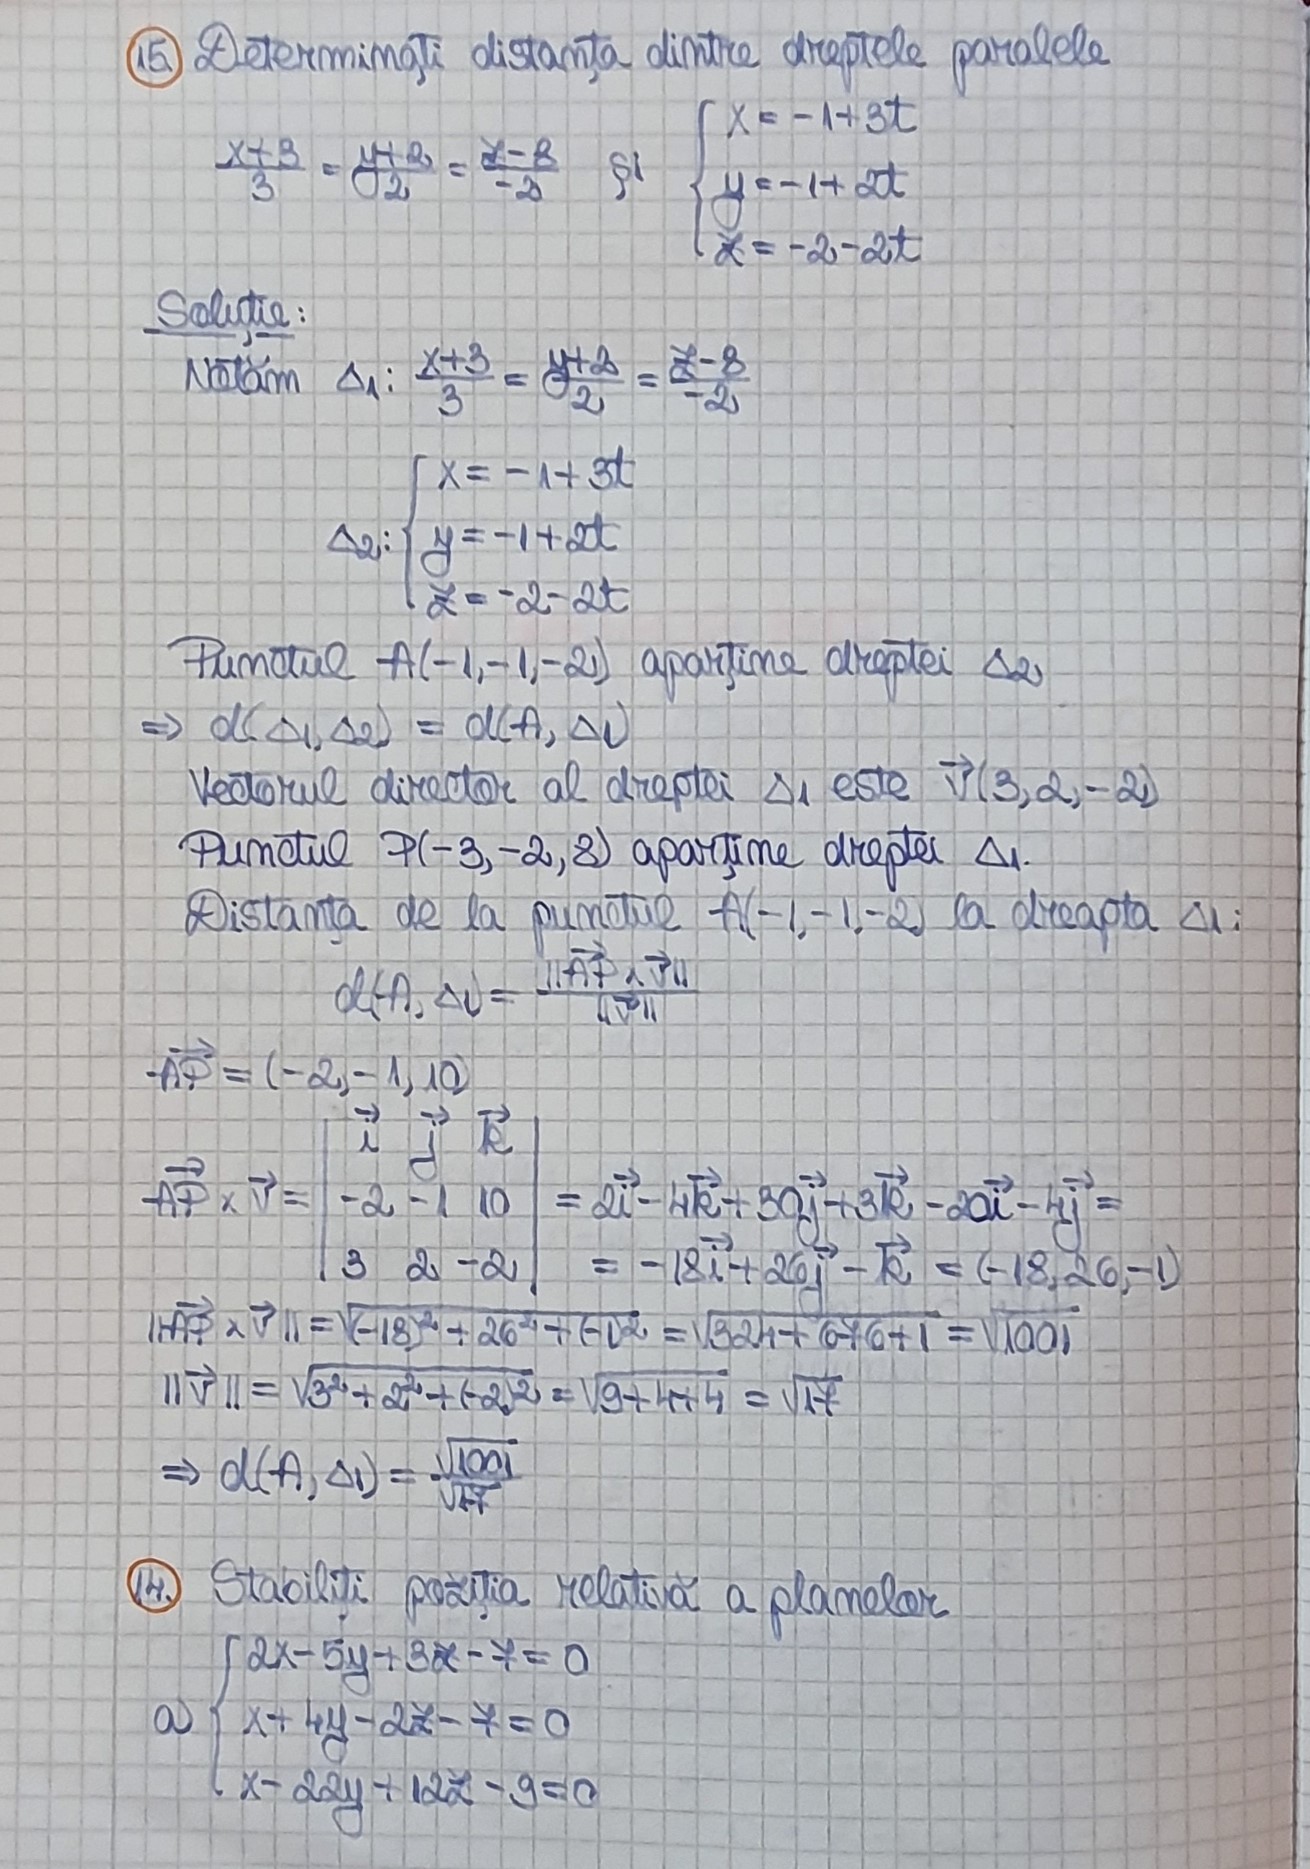 15. Determinați distanța dintre dreptele paralele
x+3/3 = y+2/2 = z-8/-2 și { x = -1+3t
y = -1+2t
z = -2-2t
Soluție:
Notăm Δ1: x+3/3 = y+2/2 = z-8/-2
Δ2: { x = -1+3t
y = -1+2t
z = -2-2t
Punctul A(-1,-1,-2) aparține dreptei Δ2
⇒ d(Δ1,Δ2) = d(A, Δ1)
Vectorul director al dreptei Δ1 este v⃗(3,2,-2)
Punctul P(-3,-2,8) aparține dreptei Δ1.
Distanța de la punctul A(-1,-1,-2) la dreapta Δ1:
d(A, Δ1) = ||AP⃗ × v⃗|| / ||v⃗||
AP⃗ = (-2,-1,10)
i⃗ j⃗ k⃗
AP⃗ × v⃗ = | -2 -1 10 | = 2i⃗ - 4k⃗ + 30j⃗ + 3k⃗ - 20i⃗ - 4j⃗ =
3 2 -2 = -18i⃗ + 26j⃗ - k⃗ = (-18,26,-1)
||AP⃗ × v⃗|| = √((-18)² + 26² + (-1)²) = √(324+676+1) = √1001
||v⃗|| = √(3²+2²+(-2)²) = √(9+4+4) = √17
⇒ d(A, Δ1) = √1001/√17
14. Stabiliți poziția relativă a planelor
{ 2x-5y+3z-7=0
a) x+4y-2z-7=0
x-22y+12z-9=0